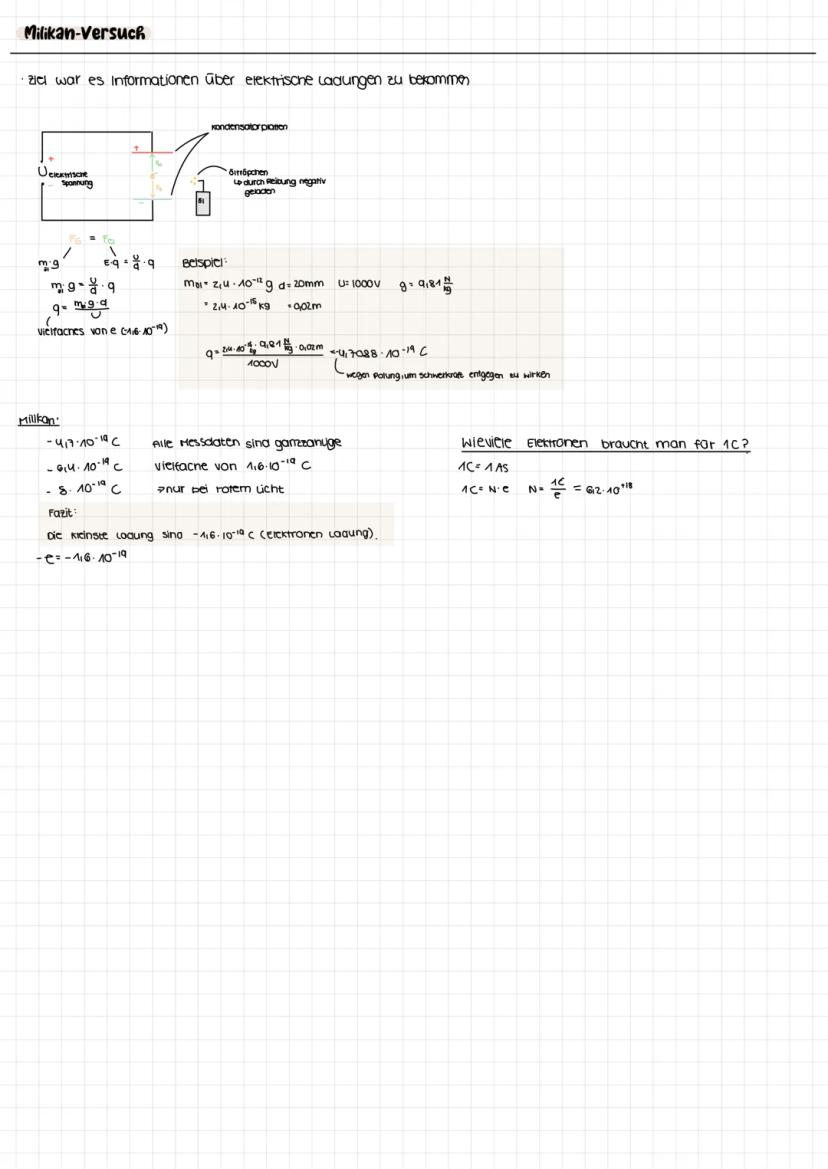 Milikan-Versuch
· Ziel war es Informationen über elektrische Ladungen zu bekommen
Kondensatorplatten
+
+
U elektrische
Spannung
-
-
Öltröpchen
↳ durch Reibung negativ
geladen
Öl
FG = FQ
m·g E·q = U/d · q
Öl
m·g = U/d · q
Öl
q = m·g·d / U
Öl
Vielfaches von e (-1,6·10⁻¹⁹)
Beispiel:
mÖl = 2,4 · 10⁻¹² g d = 20mm U = 1000V g = 9,81 N/kg
= 2,4 · 10⁻¹⁵ kg = 0,02m
q = 2,4·10⁻¹⁵ kg · 9,81 N/kg · 0,02m / 1000V = -4,7088 · 10⁻¹⁹ C
wegen Polung, um Schwerkraft entgegen zu wirken
Milikan:
- 4,7 · 10⁻¹⁹ C Alle Messdaten sind ganzzahlige
- 6,4 · 10⁻¹⁹ C Vielfache von 1,6·10⁻¹⁹ C
- 8 · 10⁻¹⁹ C ⇒ nur bei rotem Licht
Fazit:
Die kleinste Ladung sind -1,6 · 10⁻¹⁹ C (Elektronen Ladung).
- e = -1,6 · 10⁻¹⁹
Wieviele Elektronen braucht man für 1C?
1C = 1 AS
1C = N·e N = 1C/e = 6,2 · 10⁺¹⁸